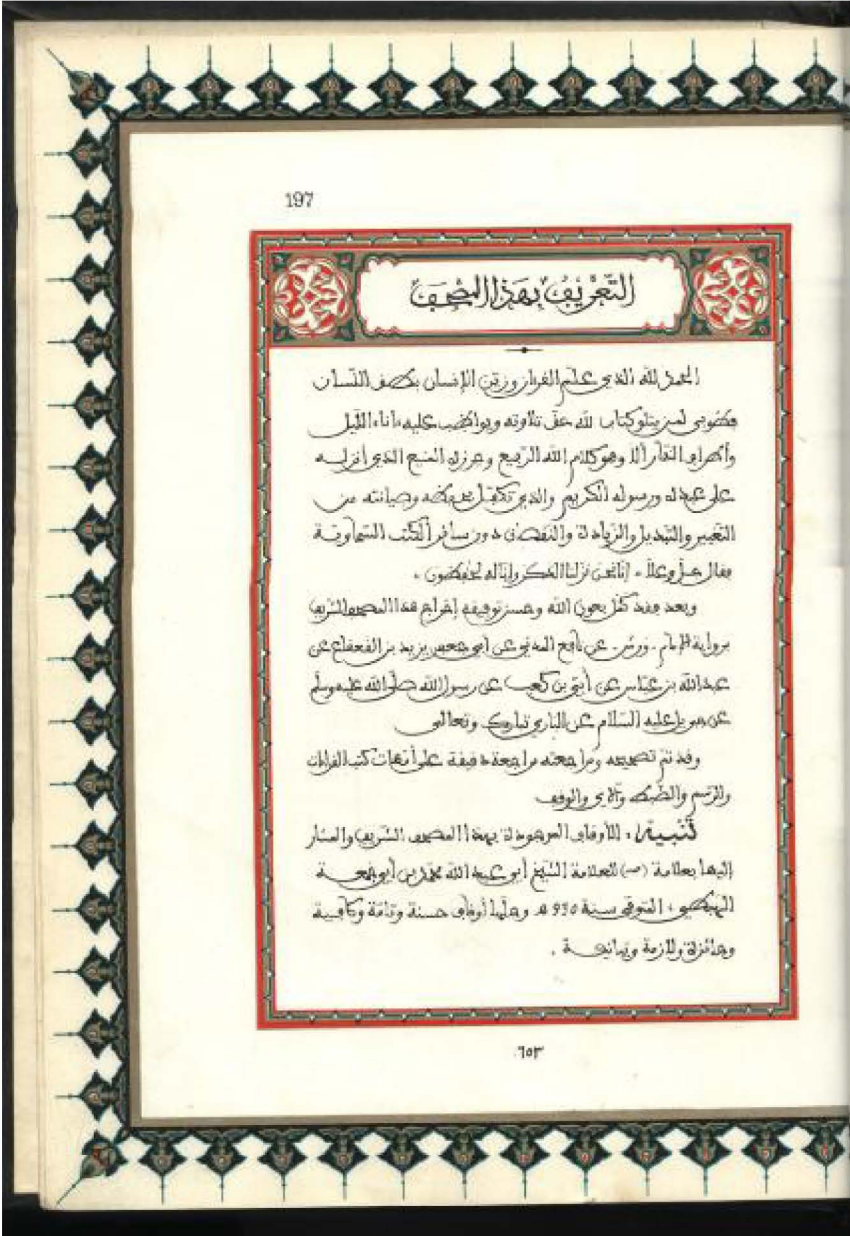 197
التَّعْرِيفُ بِهَذَا الْمُصْحَفِ
الحمد لله الذي علم القرءان وزين الإنسان بنطف اللسان
فطوبى لمن يتلو كتاب الله حق تلاوته ويواظب عليه ءاناء الليل
وأطراف النهار ألا وهو كلام الله الرفيع وحرزه المنيع الذي أنزله
على عبده ورسوله الكريم والذي تكفل بحفظه وصيانته من
التغيير والتبديل والزيادة والنقصان دون سائر الكتب السماوية
فقال جل وعلا « إنا نحن نزلنا الذكر وإنا له لحافظون »
وبعد فقد كمل بعون الله وحسن توفيقه إخراج هذا المصحف الشريف
برواية الإمام - ورش - عن نافع المدني عن أبي جعفر يزيد بن القعقاع عن
عبد الله بن عباس عن أبي بن كعب عن رسول الله صلى الله عليه وسلم
عن جبريل عليه السلام عن الباري تبارك وتعالى
وقد تم تصحيحه ومراجعته مراجعة دقيقة على أمهات كتب القراءات
والرسم والضبط والآي والوقف
تنبيه : الأوقاف الموجودة بهذا المصحف الشريف والمشار
إليها بعلامة (صـ) للعلامة الشيخ أبي عبد الله محمد بن أبي جمعة
الهبطي ، المتوفى سنة 930 هـ وجلها أوقاف حسنة وتامة وكافية
وجائزة ولازمة وبيانية .
٦٥٣